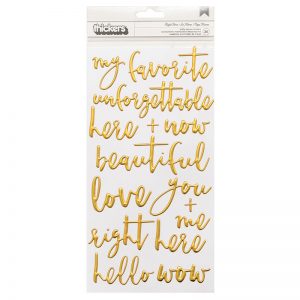 thickers
my favorite
unforgettable
here + now
beautiful
love you
+ me
right here
hello wow